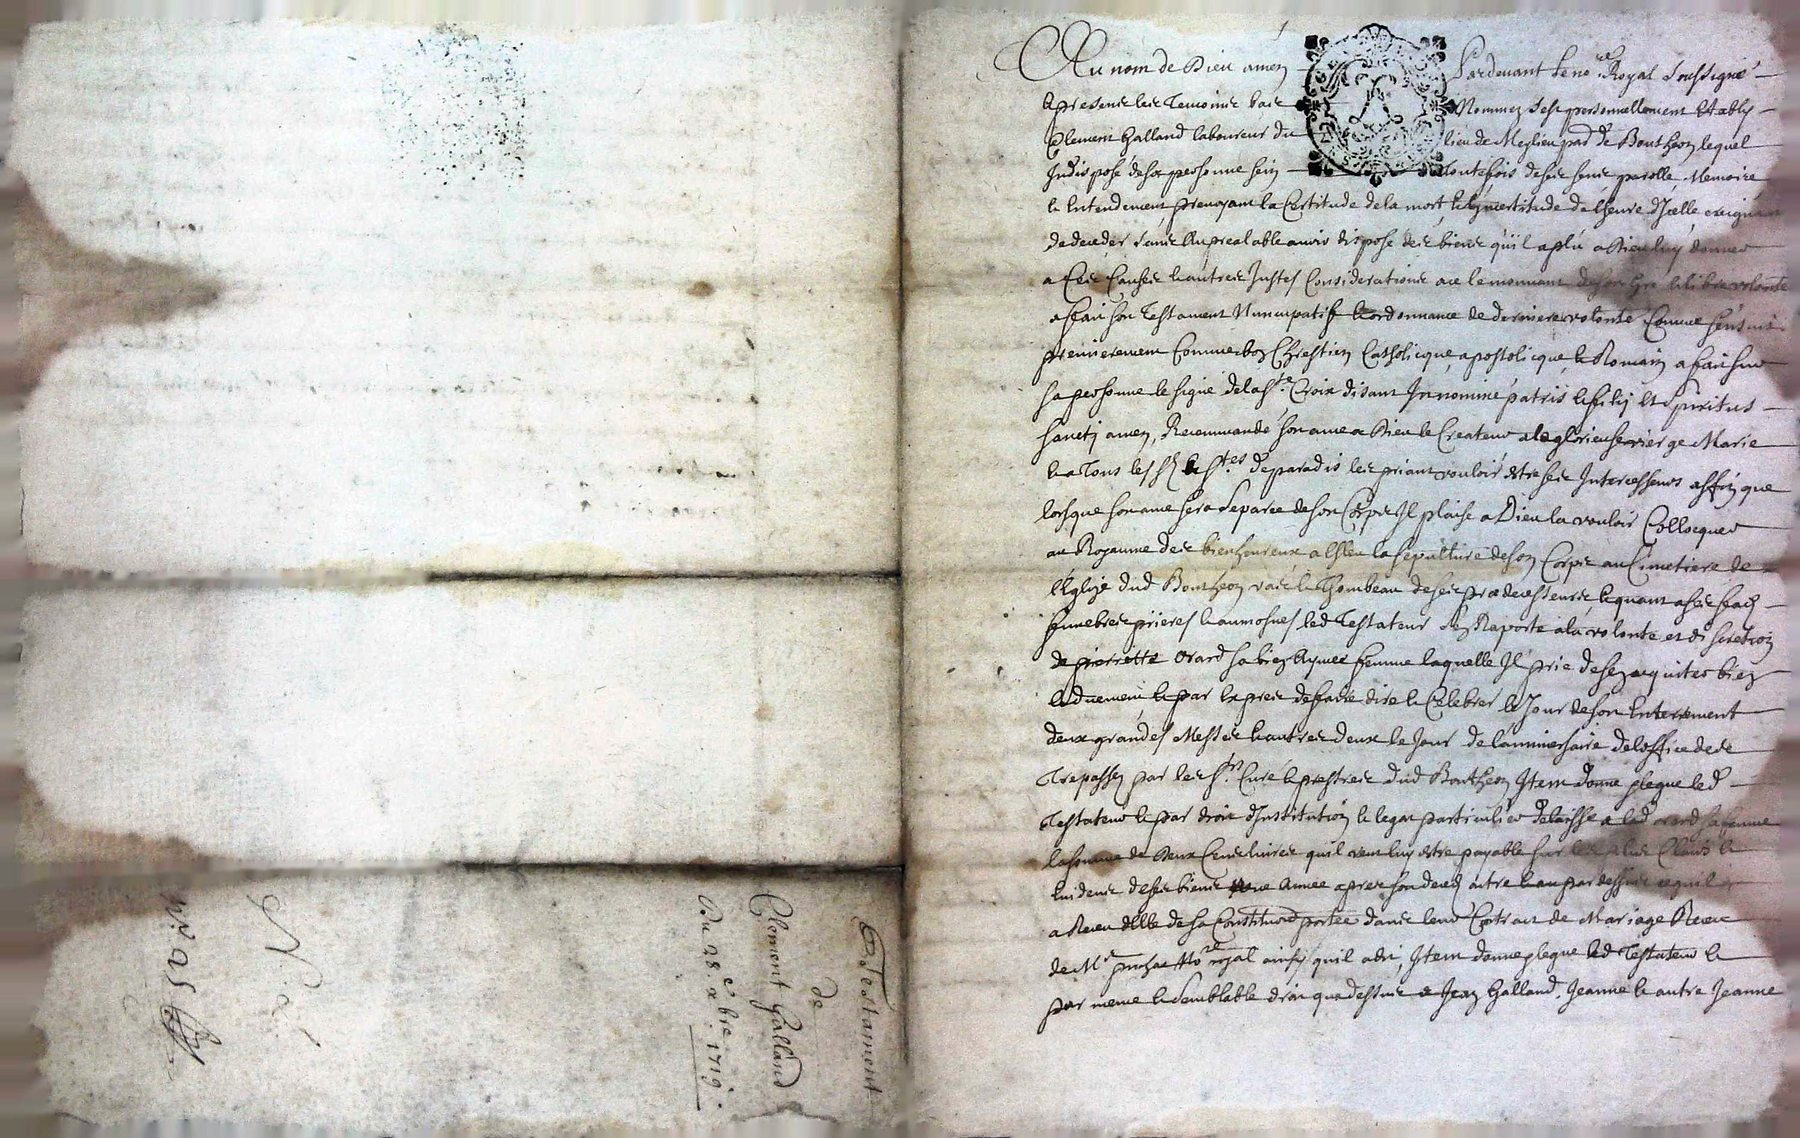 Testament
de
Clement Galland
Du 28e xbre 1719.
Au nom de Dieu amen Pardevant le nore Royal soussigné
& presens les Temoins bas Nommez s'est personnellement Estably
Clement Galland laboureur du lieu de Meylieu pad de Bontheon lequel
Indispose de sa personne sein Toutefois de ses sens parolle, Memoire
& Entendement prevoyant la Certitude de la mort & lincertitude de lheure d'Icelle craignant
de deceder sans Au prealable avoir dispose des biens quil a plu a Dieu luy donner
a Ces Causes & autres Justes Considerations de son gre & libre volonté
a fait son Testament Nuncupatif & ordonnance de derniere volonté Comme sensuit
premierement Comme bon Chrestien Catholicque, apostolicque, & Romain a fait sur
sa personne le signe de la ste Croix disant In nomine patris & filij Et Spiritus
sancti amen, Recommandé son ame a Dieu le Createur a la glorieuse vierge Marie
& a Tous les sts & stes de paradis les priant vouloir estre ses Intercesseurs affin que
lorsque son ame sera separee de son Corps Il plaise a Dieu la vouloir Collocquer
au Royaume des bienheureux a Esleu la sepulture de son Corps au Cimetiere de
l'Eglize dud Bontheon vas & Thombeau de ses predecesseurs, & quant a ses frais
funebres prieres & aumosnes led Testateur sen Raporte a la volonté et discretion
de pierrette Orard sa bien Aymee femme laquelle Il prie de sen acquiter bien
& duement, & par Expres de faire dire & Celebrer le Jour de son Enterrement
deux grandes Messes & autres deux le Jour de lanniversaire de loffice des
Trepassez par les srs Curé & prestres dud Bontheon Item donne & legue led
Testateur & par droit d'Institution & legat particulier delaisse a lad orard sa femme
la somme de Deux Cens livres quil veut luy estre payable sur les plus Clairs &
Evidens de ses biens une Annee apres son deces outre & au par dessus ce quil
a Receu delle de sa Constitu॰n portee dans leur Contract de Mariage Receu
de Me No.re royal ainsy quil a dit, Item donne & legue led Testateur &
par meme & semblable droit que dessus a Jean Galland, Jeanne & autre Jeanne